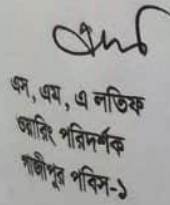 এস, এম, এ লতিফ
ওয়ারিং পরিদর্শক
গাজীপুর পবিস-১